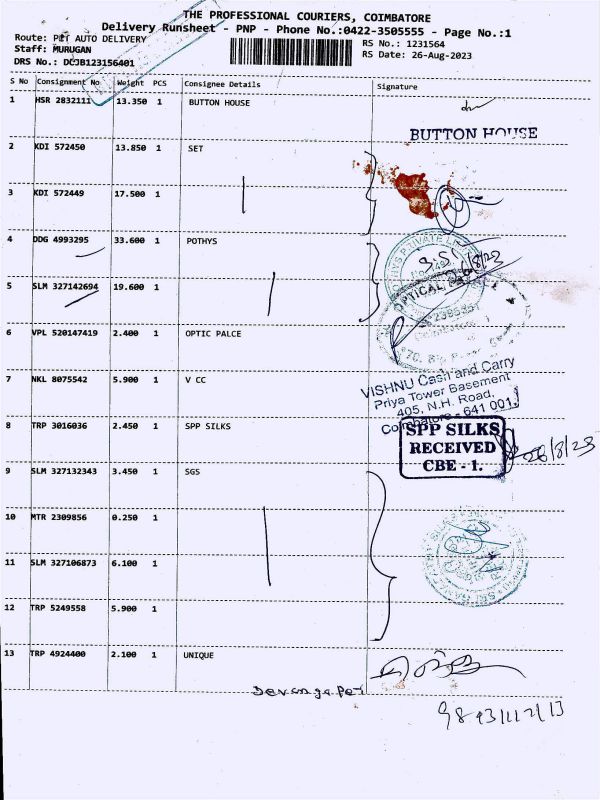 THE PROFESSIONAL COURIERS, COIMBATORE
Delivery Runsheet - PNP - Phone No.:0422-3505555 - Page No.:1
Route: PET AUTO DELIVERY
RS No.: 1231564
Staff: MURUGAN
RS Date: 26-Aug-2023
DRS No.: DCJB123156401
S No Consignment No Weight PCS Consignee Details Signature
1 HSR 2832111 13.350 1 BUTTON HOUSE
BUTTON HOUSE
2 KDI 572450 13.850 1 SET
3 KDI 572449 17.500 1
4 DDG 4993295 33.600 1 POTHYS
5 SLM 327142694 19.600 1
6 VPL 520147419 2.400 1 OPTIC PALCE
7 NKL 8075542 5.900 1 V CC
VISHNU Cash and Carry
Priya Tower Basement
405, N.H. Road,
Coimbatore - 641 001.
8 TRP 3016036 2.450 1 SPP SILKS
SPP SILKS
RECEIVED
CBE - 1.
26/8/23
9 SLM 327132343 3.450 1 SGS
10 MTR 2309856 0.250 1
11 SLM 327106873 6.100 1
12 TRP 5249558 5.900 1
13 TRP 4924400 2.100 1 UNIQUE
Devangapet